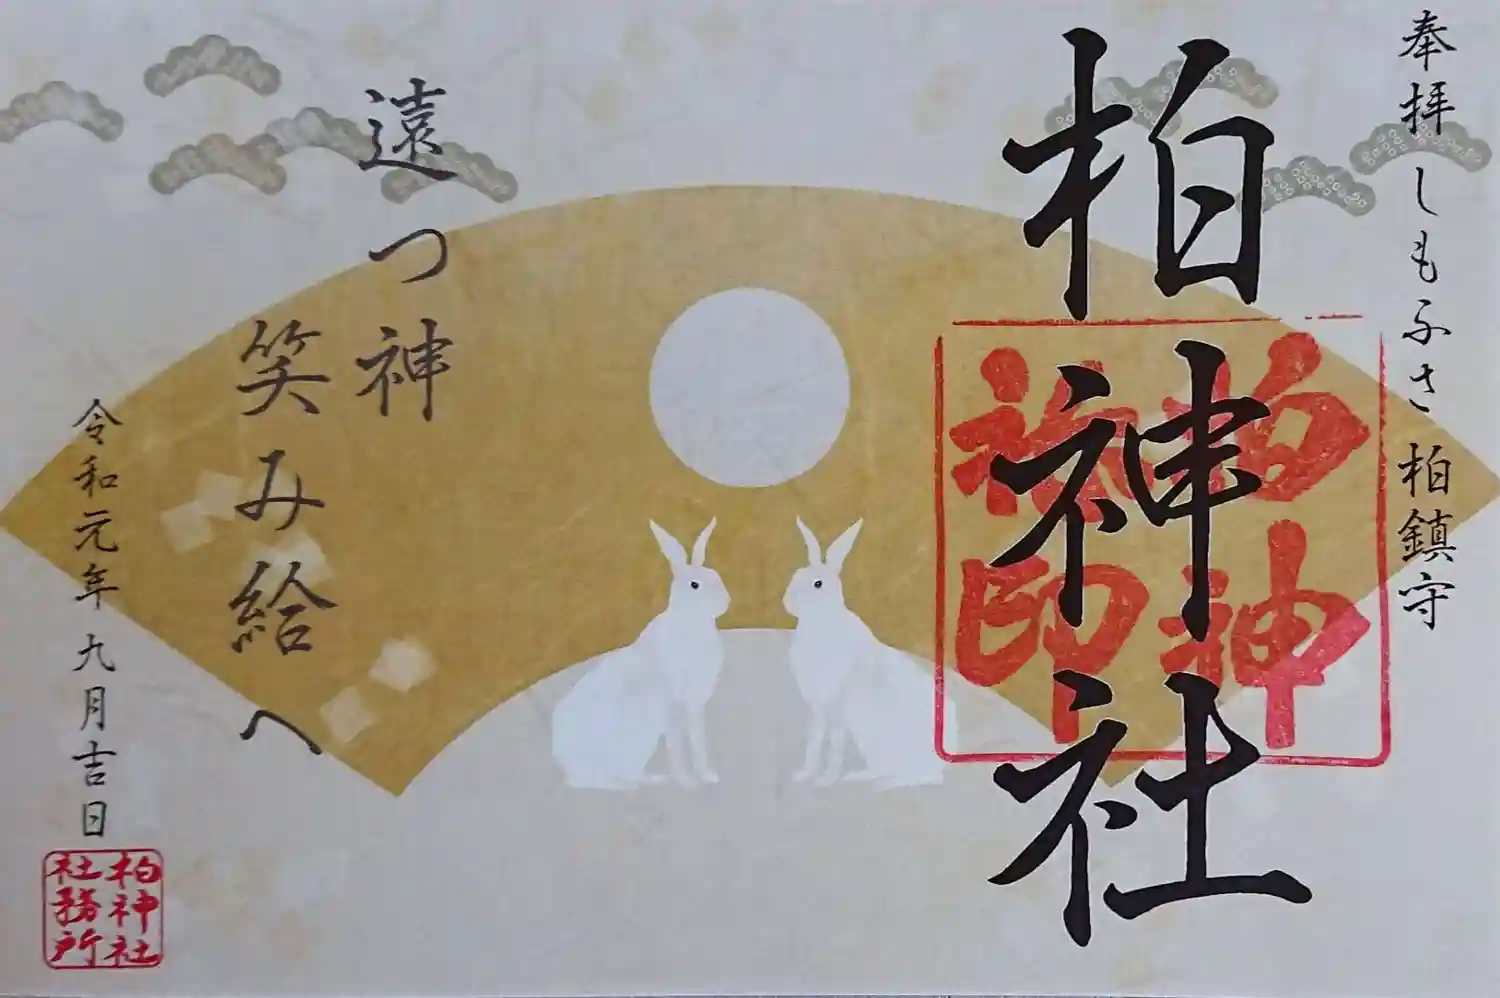 奉拝 しもふさ 柏鎮守
柏神社
柏神
社印
遠つ神
笑み給へ
令和元年 九月吉日
柏神社
社務所